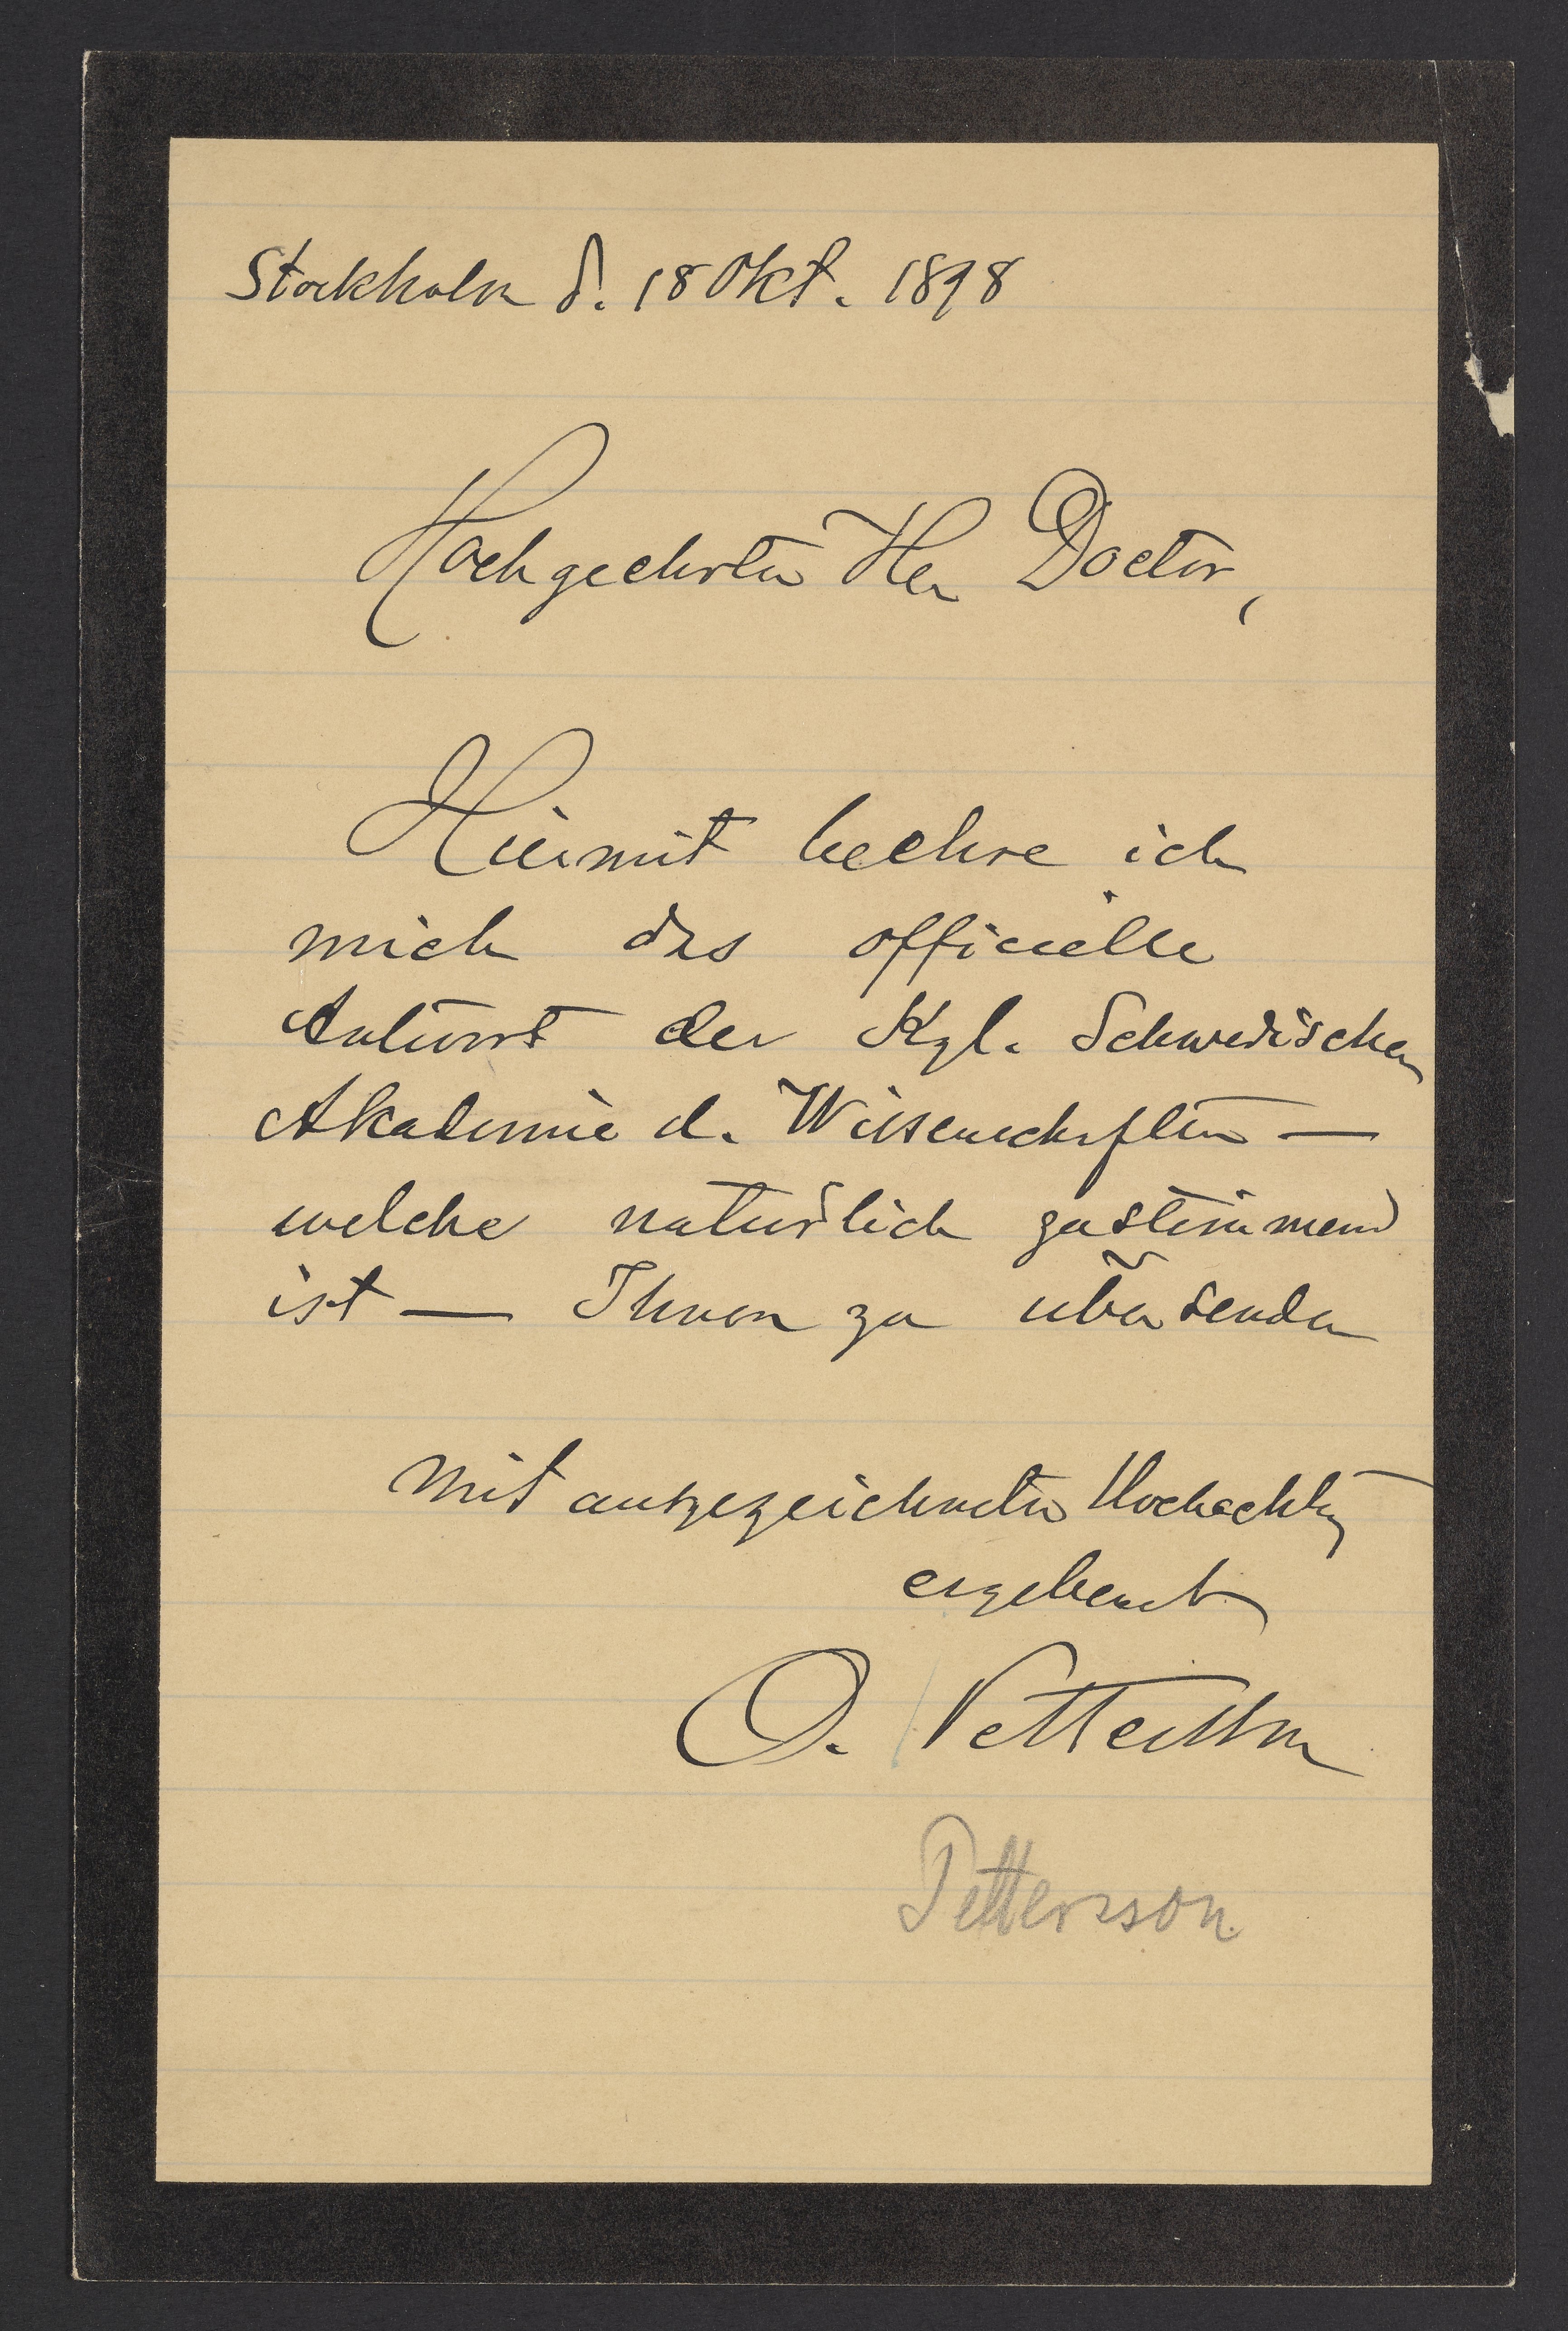 Stockholm d. 18 Okt. 1898
Hochgeehrter Herr Doctor,
Hiermit beehre ich
mich das officielle
Antwort der Kgl. Schwedischen
Akademie d. Wissenschaften —
welche natürlich zustimmend
ist — Ihnen zu übersenden
Mit ausgezeichneter Hochachtung
ergebenst
O. Pettersson
Pettersson